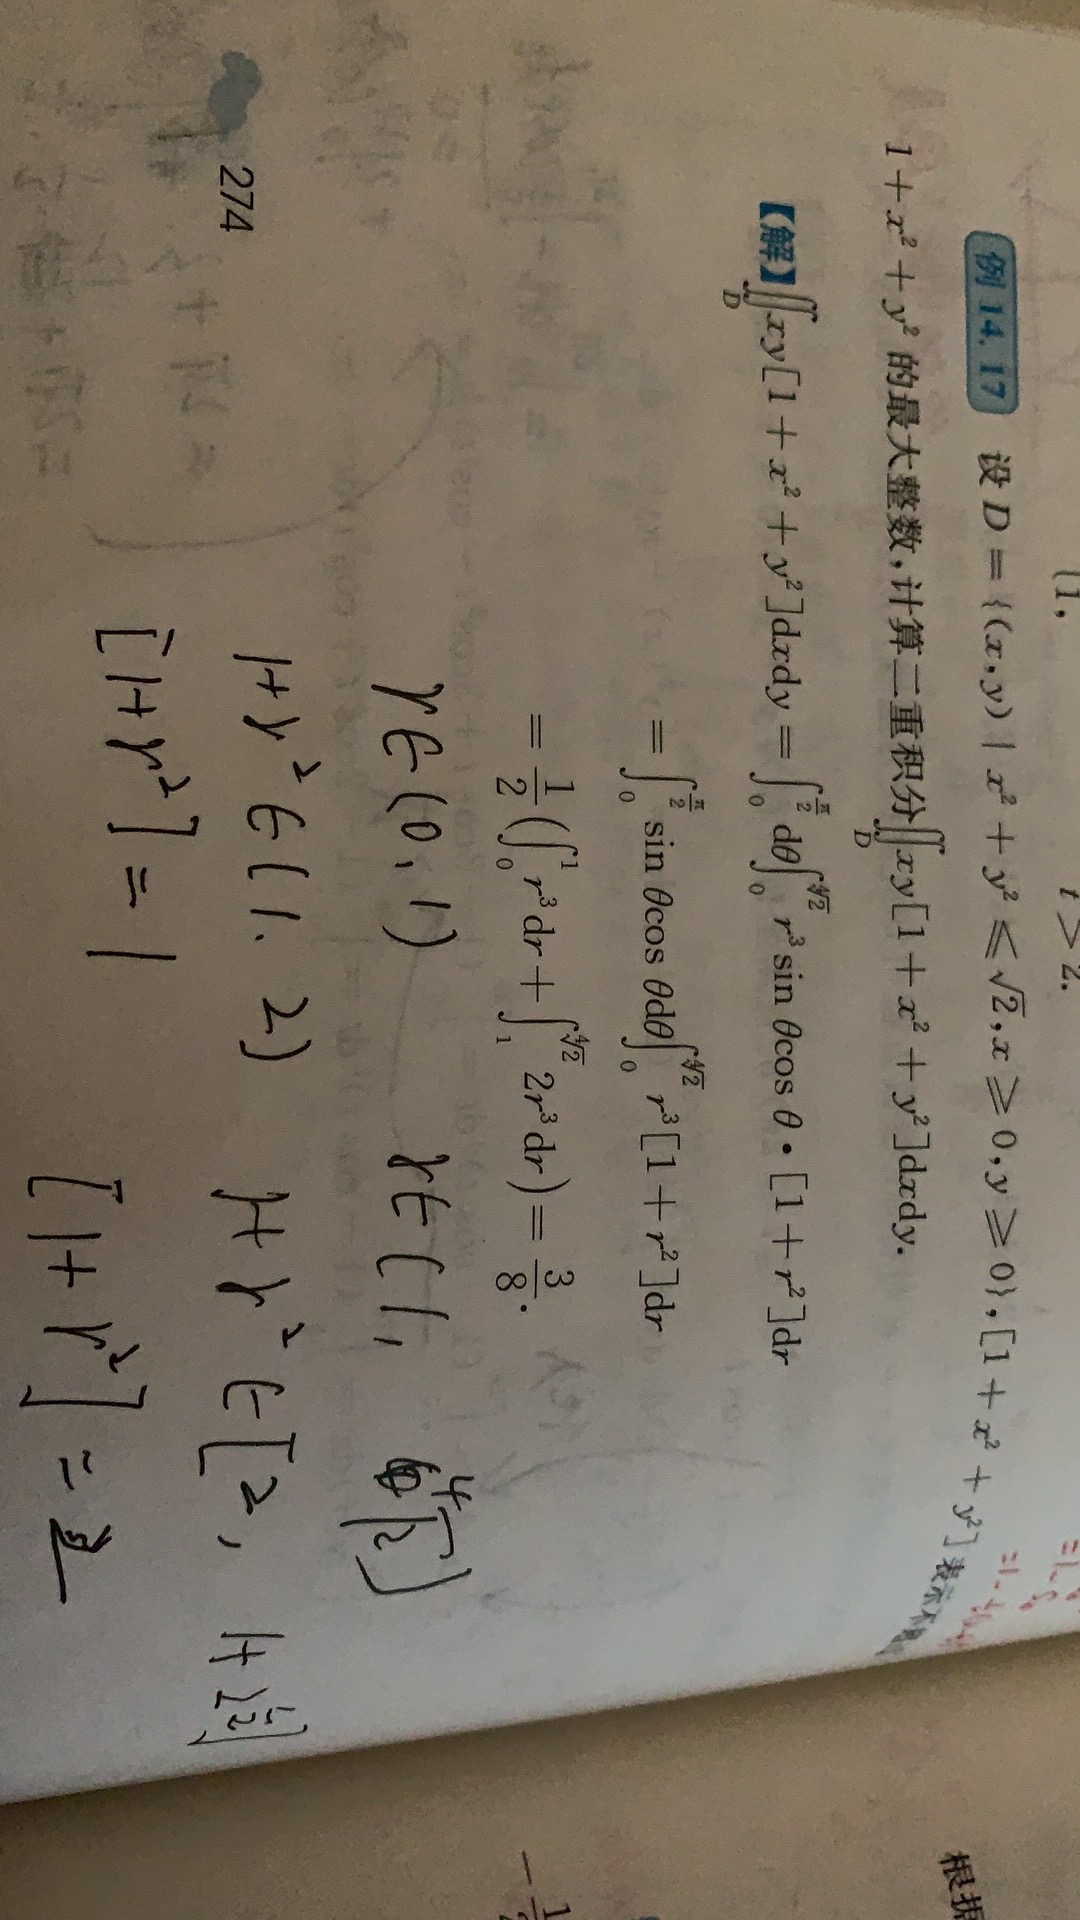 {1,
t>2.
例 14.17 设 D = {(x,y) | x² + y² ≤ √2, x ≥ 0, y ≥ 0}, [1 + x² + y²] 表示不
1 + x² + y² 的最大整数,计算二重积分∬_D xy[1 + x² + y²]dxdy.
【解】∬_D xy[1 + x² + y²]dxdy = ∫_0^{π/2} dθ∫_0^{∜2} r³ sin θcos θ • [1 + r²]dr
= ∫_0^{π/2} sin θcos θdθ∫_0^{∜2} r³[1 + r²]dr
= 1/2 (∫_0^1 r³dr + ∫_1^{∜2} 2r³dr) = 3/8.
r∈(0,1) r∈(1, ∜2]
1+r²∈(1.2) 1+r²∈[2, 1+√2]
[1+r²]=1 [1+r²]=2
274
根据